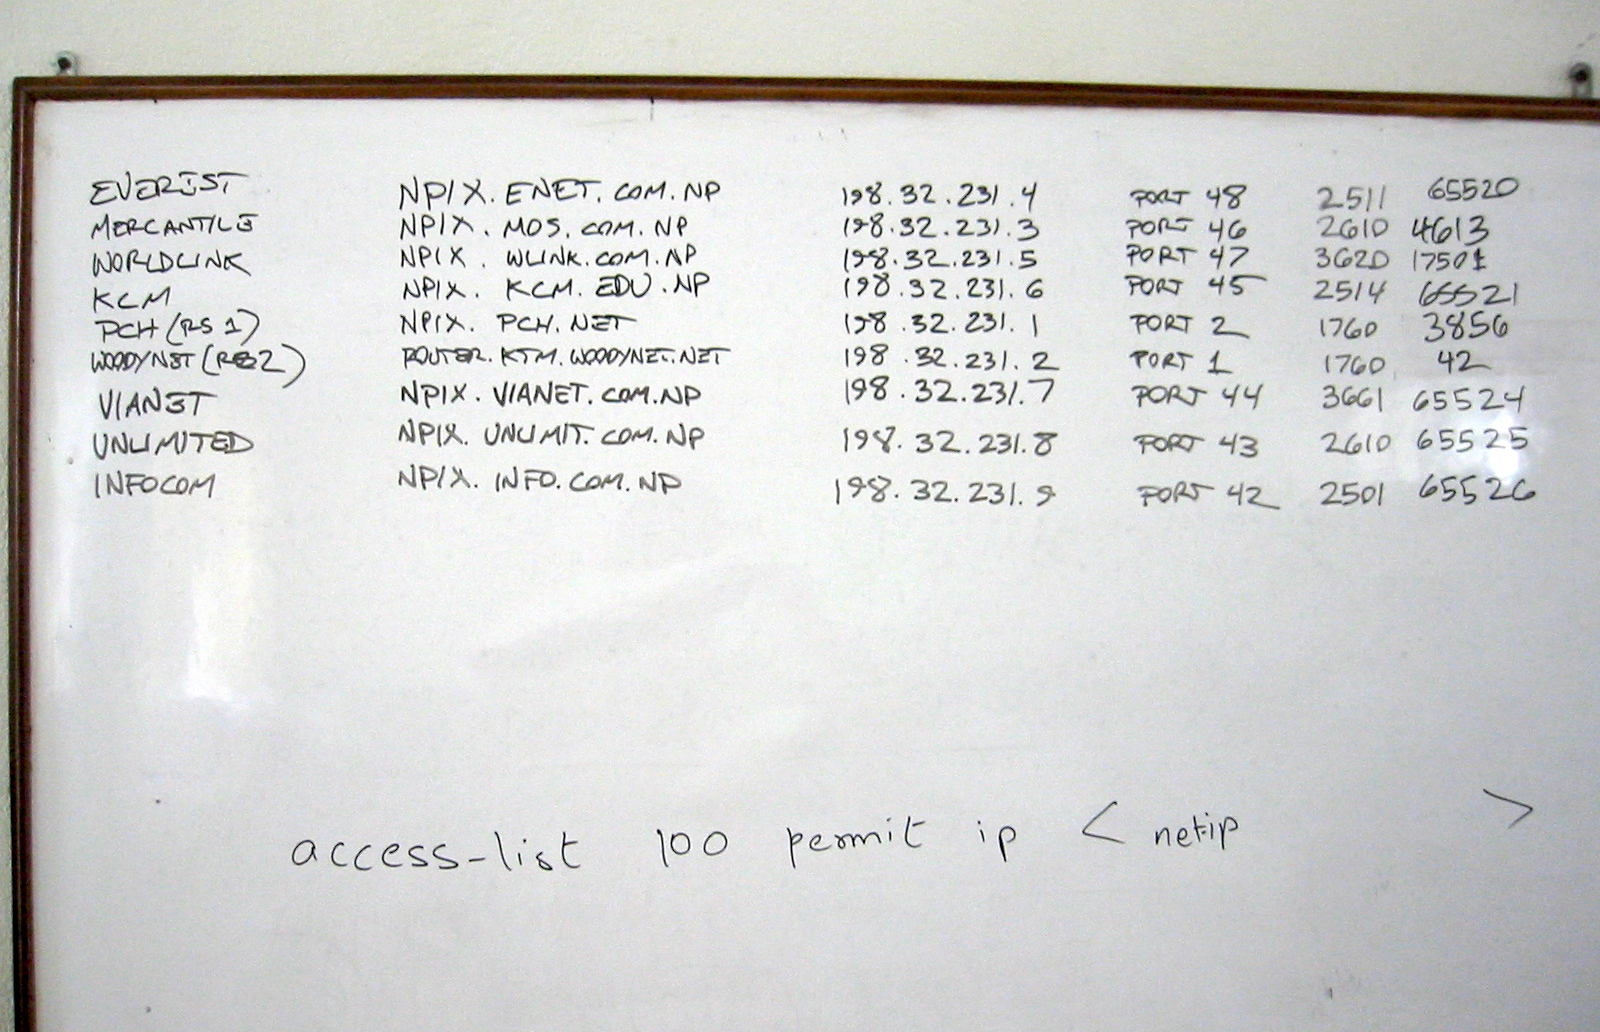 EVEREST NPIX.ENET.COM.NP 198.32.231.4 PORT 48 2511 65520
MERCANTILE NPIX.MOS.COM.NP 198.32.231.3 PORT 46 2610 4613
WORLDLINK NPIX.WLINK.COM.NP 198.32.231.5 PORT 47 3620 17501
KCM NPIX.KCM.EDU.NP 198.32.231.6 PORT 45 2514 65521
PCH (RS1) NPIX.PCH.NET 198.32.231.1 PORT 2 1760 3856
WOODYNET (RS2) ROUTER.KTM.WOODYNET.NET 198.32.231.2 PORT 1 1760 42
VIANET NPIX.VIANET.COM.NP 198.32.231.7 PORT 44 3661 65524
UNLIMITED NPIX.UNLIMIT.COM.NP 198.32.231.8 PORT 43 2610 65525
INFOCOM NPIX.INFO.COM.NP 198.32.231.9 PORT 42 2501 65526
access-list 100 permit ip < netip >